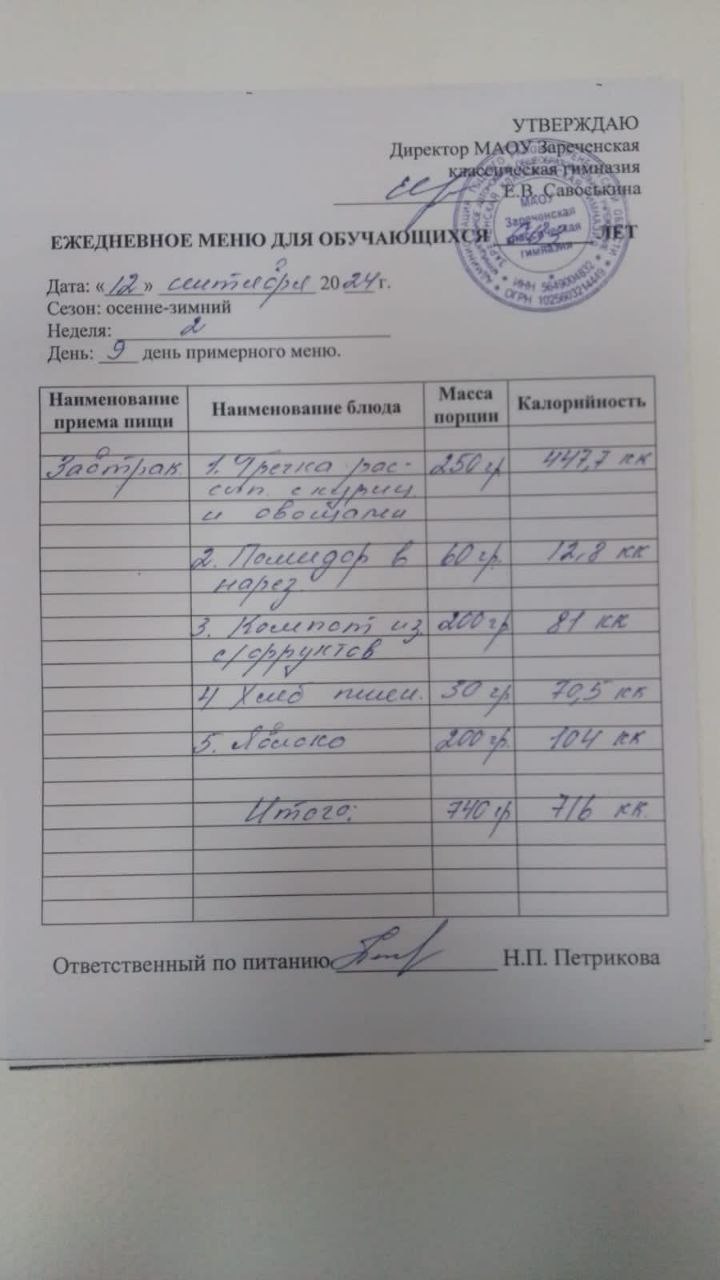 УТВЕРЖДАЮ
Директор МАОУ Зареченская
классическая гимназия
Е.В. Савоськина
МАОУ
Зареченская
классическая
гимназия
ИНН 5649004832
ОГРН 1025603214449
ЕЖЕДНЕВНОЕ МЕНЮ ДЛЯ ОБУЧАЮЩИХСЯ ЛЕТ
Дата: «12» сентября 2024 г.
Сезон: осенне-зимний
Неделя: 2
День: 9 день примерного меню.
Наименование приема пищи Наименование блюда Масса порции Калорийность
Завтрак 1. Гречка рас- 250 гр 447,7 кк
сып. с куриц
и овощами
2. Помидор в 60 гр. 12,8 кк
нарез.
3. Компот из 200 гр 81 кк
с/фруктов
4 Хлеб пшен. 30 гр 70,5 кк
5. Яблоко 200 гр. 104 кк
Итого: 740 гр 716 кк.
Ответственный по питанию Н.П. Петрикова